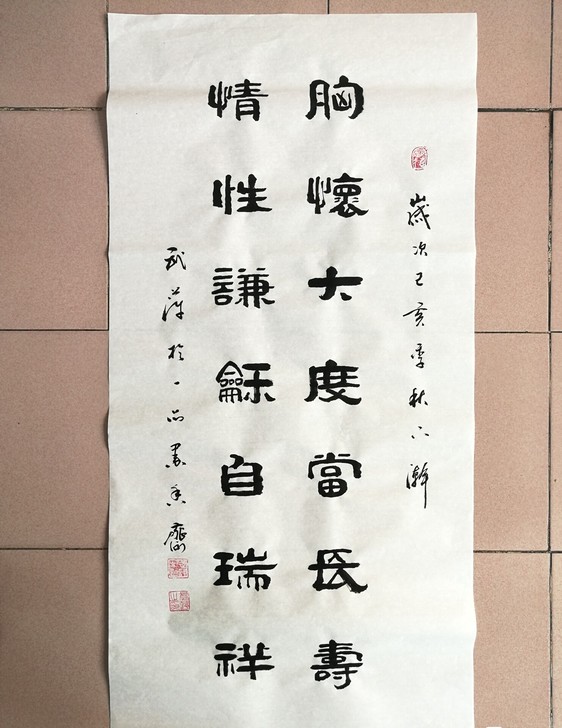 歲次己亥季秋下澣
胸懷大度當長壽
情性謙龢自瑞祥
武萍於一品墨香齋